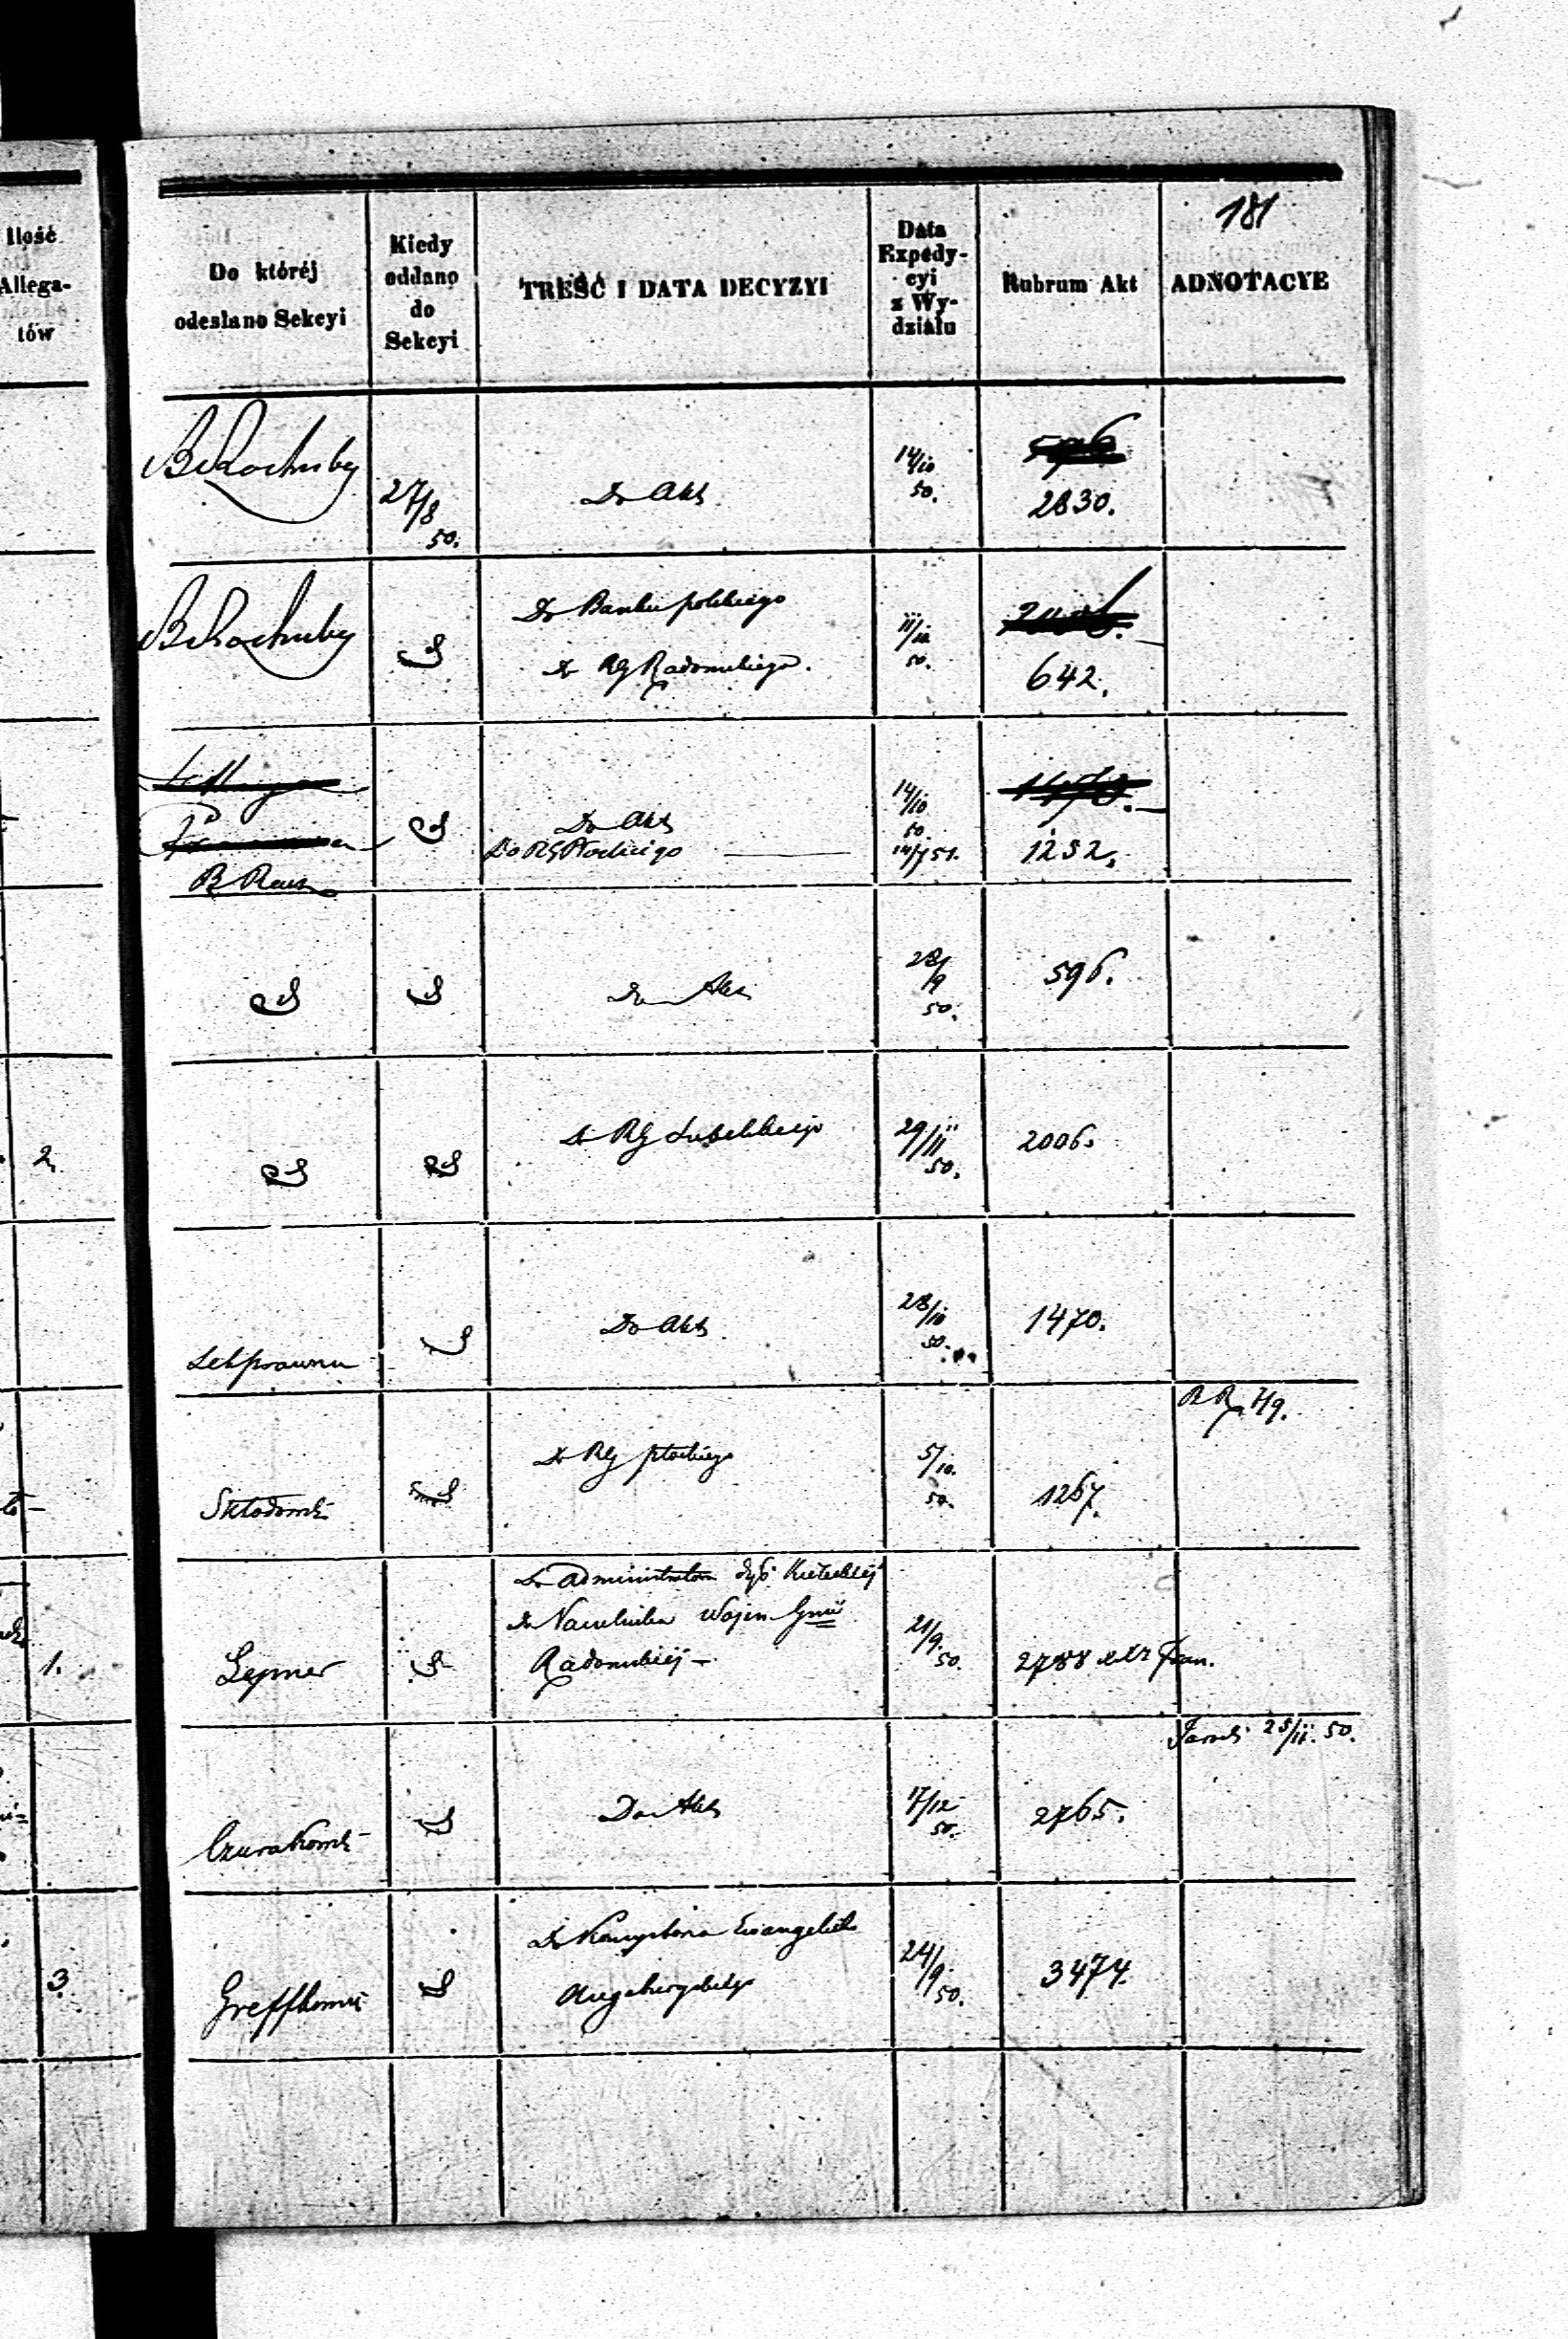 181
Ilość
Allega-
tów
Do któréj
odesłano Sekcyi
Kiedy
oddano
do
Sekcyi
TREŚĆ I DATA DECYZYI
Data
Expedy-
cyi
z Wy-
działu
Rubrum Akt
ADNOTACYE
27/8
50.
Do Akt
14/10
50.
596
2830.
Do Banku polskiego
Do RG Radomskiego.
11/10
50.
2006.
642.
Do Akt
Do RG Płockiego
14/10
50.
14/7 51.
1470.
1252.
B Raw
Do Akt
28/9
50.
596.
2
Do RG Lubelskiego
29/11
50.
2006.
Do Akt
28/10
50.
1470.
Skłodowski
Do RG płockiego
5/10.
50.
1267.
BR 7/9.
1.
Lepner
Do Administratora Dyó Kieleckiéj
Do Naczelnika Wojen Gnii
Radomskiéj –
21/9.
50.
2788
Czurakowski
Do Akt
17/12
50.
2765.
25/11. 50.
3
Do Konsystorza Ewangelicko
Augsburgskiego
24/9.
50.
3474.